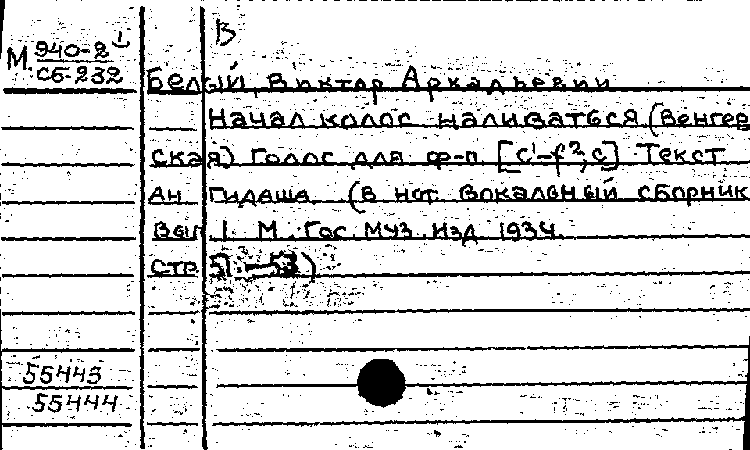 В
М 940-2
Сб-232
Белый, Виктор Аркадьевич
Начал колос наливаться (Венгер
ская) Голос для ф-п [c'-f²; c] Текст
Ан Гидаша (в нот. Вокальный сборник
Вып 1. М. Гос. Муз. Изд 1934.
стр 51-53)
55445
55444